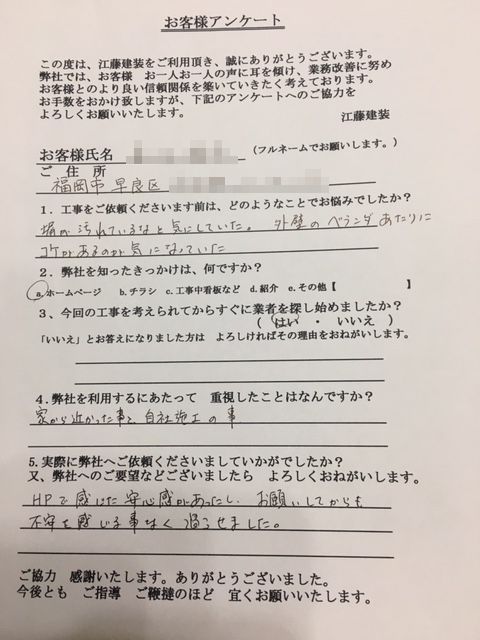 お客様アンケート
この度は、江藤建装をご利用頂き、誠にありがとうございます。
弊社では、お客様　お一人お一人の声に耳を傾け、業務改善に努め
お客様とのより良い信頼関係を築いていきたく考えております。
お手数をおかけ致しますが、下記のアンケートへのご協力を
よろしくお願いいたします。
江藤建装
お客様氏名　（フルネームでお願いします。）
ご　住　所
福岡市 早良区
１．工事をご依頼くださいます前は、どのようなことでお悩みでしたか？
塀が汚れているなと気にしていた。 外壁のベランダあたりに
コケがあるのが気になっていた
２．弊社を知ったきっかけは、何ですか？
a.ホームページ　b.チラシ　c.工事中看板など　d.紹介　e.その他【　　　　】
３、今回の工事を考えられてからすぐに業者を探し始めましたか？
（　はい　・　いいえ　）
「いいえ」とお答えになりました方は　よろしければその理由をおねがいします。
４.弊社を利用するにあたって　重視したことはなんですか？
家から近かった事と、自社施工の事
５.実際に弊社へご依頼くださいましていかがでしたか？
又、弊社へのご要望などございましたら　よろしくおねがいします。
HPで感じた安心感があったし、お願いしてからも
不安を感じる事なく過ごせました。
ご協力　感謝いたします。ありがとうございました。
今後とも　ご指導　ご鞭撻のほど　宜くお願いいたします。